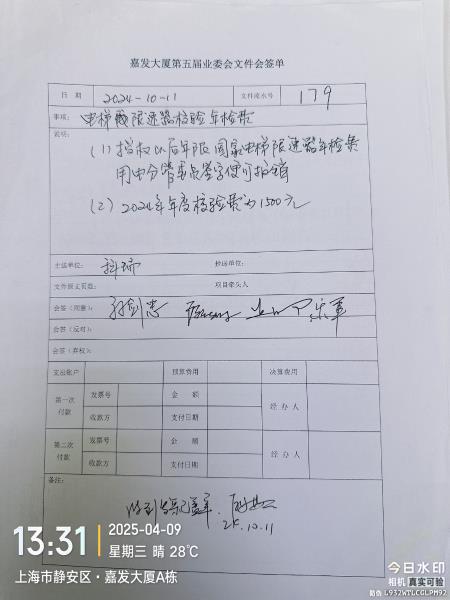 嘉发大厦第五届业委会文件会签单
日 期 2024-10-11 文件流水号 179
事项: 电梯 限速器校验年检费
说明:
(1) 授权以后年限 国家电梯限速器年检费
用由分管委员签字便可报销
(2) 2024年年度校验费为1500元
主送单位: 科瑞 抄送单位:
文件原文页数: 项目牵头人
会签(同意):
会签(反对):
会签(弃权):
支出账户 预算费用 决算费用
第一次付款 发票号 金 额 经 办 人
收款方 支付日期
第二次付款 发票号 金 额 经 办 人
收款方 支付日期
备注:
收到
10.11
13:31
2025-04-09
星期三 晴 28℃
上海市静安区·嘉发大厦A栋
今日水印
相机 真实可验
防伪 L932WTLCGLPM92